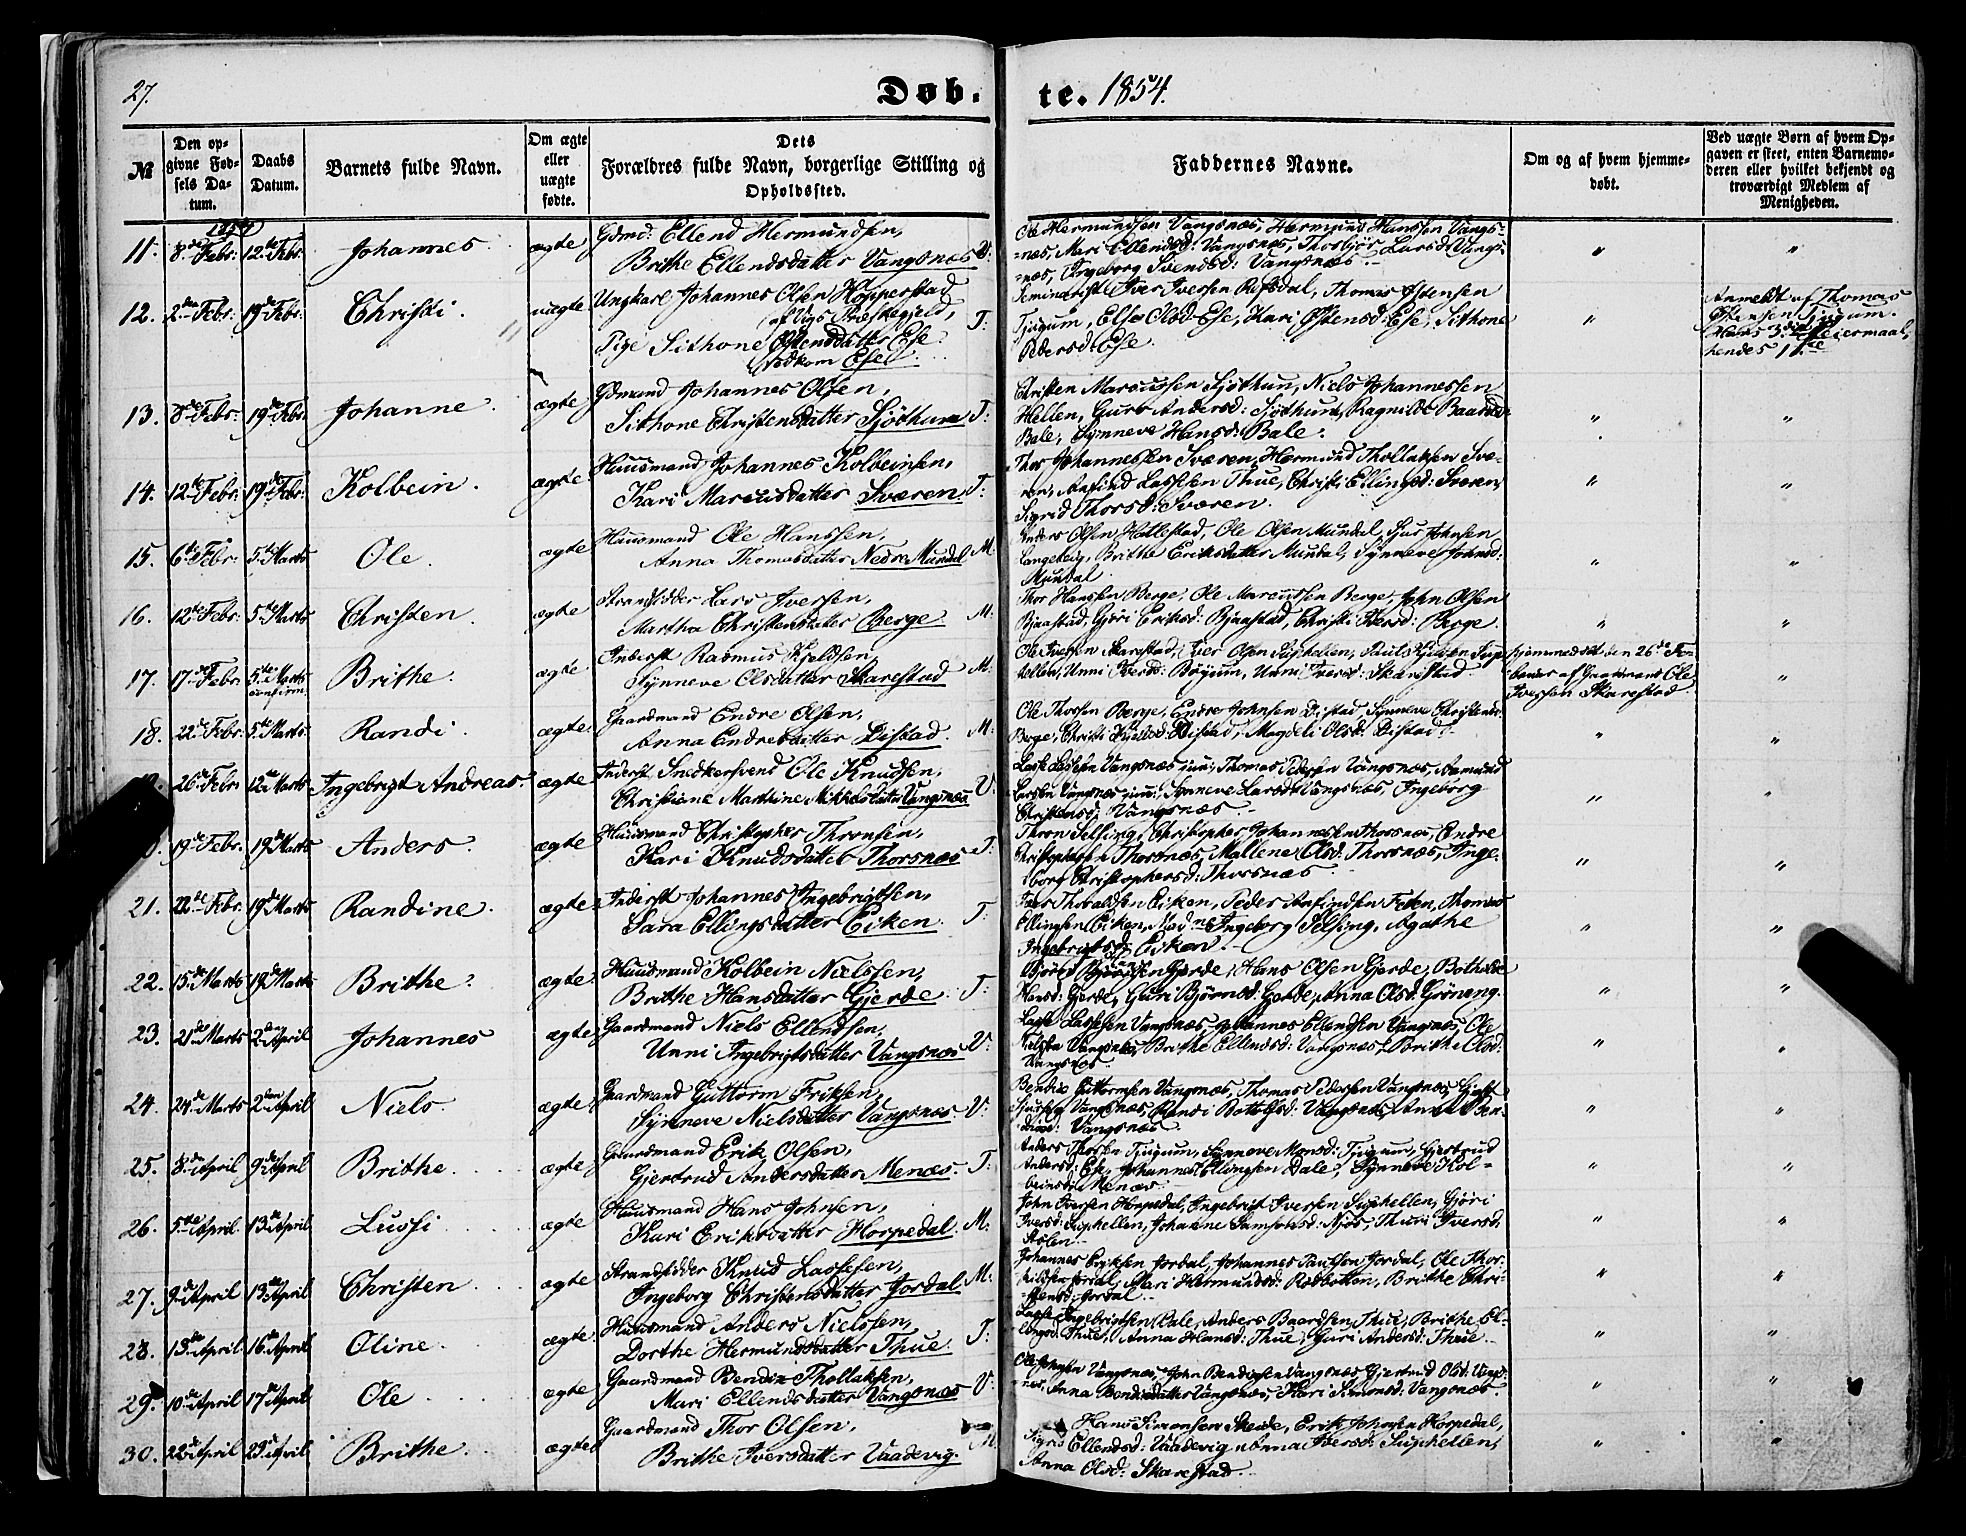 27.
Døb-
te. 1854.
№
Den op-
givne Fød-
sels Da-
tum.
Daabs
Datum.
Barnets fulde Navn.
Om ægte
eller
uægte
fødte.
Dets
Forældres fulde Navn, borgerlige Stilling og
Opholdssted.
Faddernes Navne.
Om og af hvem hjemme-
døbt.
Ved uægte Børn af hvem Op-
gaven er skeet, enten Barnemo-
deren eller hvilket bekjendt og
troværdigt Medlem af
Menigheden.
1854
11. 8de Febr: 12te Febr. Johannes ægte Gdmd: Ellend Hermundsen,
Brithe Ellendsdatter Vangsnæs V:
Ole Hermundsen Vangsnæs, Hermund Hanssen Vangs-
næs, Mari Ellendsd: Vangsnæs, Thorbjør Larsd: Vangs-
næs, Ingeborg Svendsd: Vangsnæs.
12. 2den Febr: 19de Febr: Christi. uægte Ungkarl Johannes Olsen Hopperstad
af Vigs Præstegjeld,
Pige Sithone Østensdatter Ese T:
Vedkom Ese
Seminarist Iver Iversen Refsdal, Thomas Østensen
Tjugum, Else Olsd: Ese, Kari Østensd: Ese, Sithone
Pedersd: Ese.
Anmeldt af Thomas
Østensen Tjugum.
Hans 3die Leiermaal,
hendes 1ste
13. 8de Febr: 19de Febr. Johanne. ægte Gdmand Johannes Olsen,
Sithone Christensdatter Sjøthun T:
Christen Marcussen Sjøthun, Niels Johannessen
Hellen, Guro Andersd: Sjøthun, Ragnilde Baardsd:
Bale, Synneve Hansd: Bale.
14. 12te Febr: 19de Febr: Kolbein. ægte Huusmand Johannes Kolbeinsen,
Kari Marcusdatter Sværen T:
Thor Johannessen Sværen, Hermund Thollaksen Svæ-
ren, Anfind Lassesen Thue, Christi Ellingsd: Sværen,
Sigrid Thorsd: Sværen.
15. 6te Febr: 5te Marts Ole. ægte Huusmand Ole Hanssen,
Anna Thomasdatter Nedre Mundal M.
Anders Olsen Hatlestad, Ole Olsen Mundal, Sjur Johnsen
Langeteig, Brithe Eriksdatter Mundal, Synneve Johnsd:
Mundal.
16. 12te Febr: 5te Marts Christen. ægte Strandsidder Lars Iversen,
Martha Christensdatter Berge. M.
Thor Hanssen Berge, Ole Marcussen Berge, John Olsen
Bjaastad, Gjøri Eriksd: Bjaastad, Christi Iversd: Berge
17. 17de Febr. 5te Marts Brithe. ægte Inderst Rasmus Kjeldsen,
confirm.
Synneve Olsdatter Skarestad M:
Ole Iversen Skarestad, Iver Olsen Suphellen, Sup-
hellen, Unni Iversd: Bøyum, Unni Iversd: Skarestad
hjemmedøbt den 26de Fe-
bruar af Gaardmand Ole
Iversen Skarestad
18. 22de Febr. 5te Marts Randi. ægte Gaardmand Endre Olsen,
Anna Endresdatter Distad. M:
Ole Thorsen Berge, Endre Johnsen Distad, Synneve Christensd:
Berge, Christi Distad, Magdeli Olsd: Distad.
26de Febr 12te Marts Ingebrigt Andreas ægte Inderst Snedkersvend Ole Knudsen,
Christiane Marthine Mikkelsdatter Vangsnæs V.
Lasse Lassesen Vangsnæs jun:, Thomas Pedersen Vangsnæs, Aamund
Larsen Vangsnæs jun:, Synneve Larsd: Vangsnæs, Ingeborg
Christensd: Vangsnæs.
19de Febr. 19de Marts Anders. ægte Huusmand Christopher Thronsen,
Kari Knudsdatter Thorsnæs T:
Thron Selsing, Christopher Johannesen Thorsnæs, Endre
Christophersen Thorsnæs, Mallene Olsd: Thorsnæs, Inge-
borg Christophersd: Thorsnæs.
21. 22de Febr. 19de Marts Randine. ægte Inderst Johannes Ingebrigtsen,
Sara Ellingsdatter Eiken. T:
Thorvaldsen Eiken, Peder Anfindsen Feten, Thomas
Ellingsen Eiken, Madme Ingeborg Selsing, Agathe
Ingebrigtsd: Eiken.
22. 15de Marts 19de Marts Brithe. ægte Huusmand Kolbein Nielssen,
Brithe Hansdatter Gjerde. T:
Gjerde, Hans Olsen Gjerde, Bothilde
Hansd: Gjerde, Guri Bjørnsd: Gjerde, Anna Olsd: Grøneng.
23. 21de Marts 2den April Johannes ægte Gaardmand Niels Ellendsen,
Unni Ingebrigtsdatter Vangsnæs V:
Lasse Lassesen Vangsnæs, Johannes Ellendsen Vangsnæs, Ole
Nielsen Vangsnæs, Brithe Ellendsd: Vangsnæs, Brithe Olsd:
Vangsnæs.
24. 24de Marts 2den April Niels. ægte Gaardmand Guttorm Eriksen,
Synneve Nielsdatter Vangsnæs. V:
Bendix Guttormsen Vangsnæs, Thomas Pedersen Vangsnæs,
Vangsnæs, Randi Botolfsd: Vangsnæs, Anna Ben-
dixd: Vangsnæs.
25. 3de April 9de April Brithe. ægte Gaardmand Erik Olsen,
Gjertrud Andersdatter Menæs. T:
Anders Thorsen Tjugum, Synneve Monsd: Tjugum, Gjertrud
Andersd: Ese, Johannes Ellingsen Dale, Synneve Kol-
beinsd: Menæs.
26. 5te April. 13de April Lussi ægte Huusmand Hans Johnsen,
Kari Eriksdatter Horpedal. M:
John Iversen Horpedal, Ingebrigt Iversen Suphellen, Gjøri
Iversd: Suphellen, Johanne Samsonsd: Njøs, Thuri Iversd:
Stølen.
27. 9de April 13de April Christen ægte Strandsidder Knud Lassesen,
Ingeborg Christensdatter Jordal M:
Johannes Eriksen Jordal, Johannes Paulsen Jordal, Ole Thor-
kildsen Jordal, Mari Hermundsd: Rødbotten, Brithe Chri-
stensd: Jordal.
28. 13de April 16de April Oline. ægte Huusmand Anders Nielssen,
Dorthe Hermundsdatter Thue. T:
Lasse Ingebrigtsen Bale, Anders Baardsen Thue, Brithe El-
lingsd: Thue, Anna Hansd: Thue, Guri Andersd: Thue.
29. 10de April 17de April Ole. ægte Gaardmand Bendix Thollaksen,
Mari Ellendsdatter Vangsnæs V:
Ole Johnsen Vangsnæs, John Bendixsen Vangsnæs, Gjertrud Olsd: Vangs-
næs, Anna Bendixdatter Vangsnæs, Kari Simonsd: Vangsnæs
30. 22de April 23de April Brithe. ægte Gaardmand Thor Olsen,
Brithe Iversdatter Vaadevig. M
Hans Simonsen Skeide, Erik Johnsen Horpedal,
Sigrid Ellendsd: Vaadevig, Anna Iversd: Suphellen,
Anna Olsd: Skarestad.